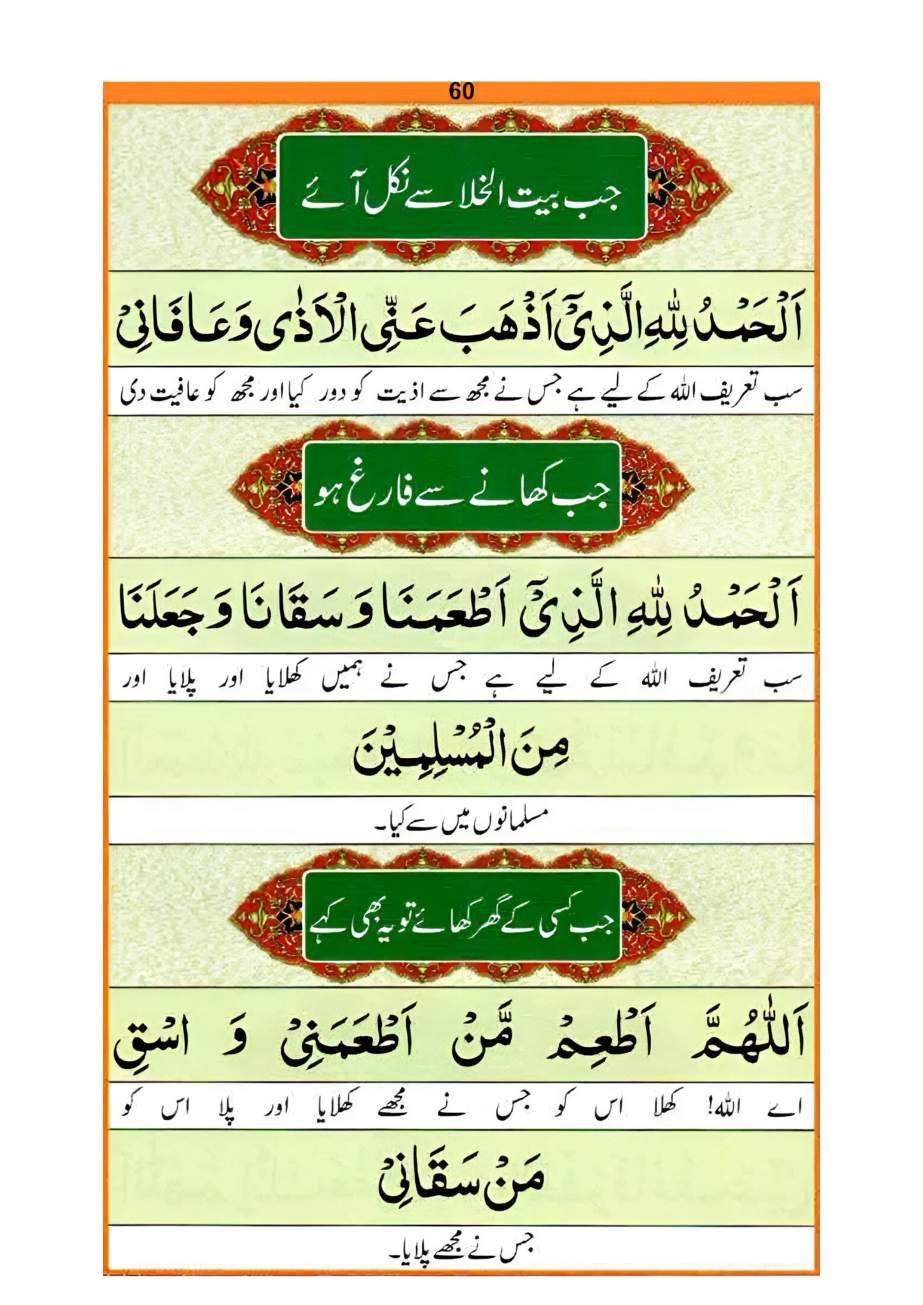 60
جب بیت الخلا سے نکل آئے
اَلْحَمْدُ لِلّٰهِ الَّذِیْۤ اَذْهَبَ عَنِّی الْاَذٰی وَعَافَانِیْ
سب تعریف اللہ کے لیے ہے جس نے مجھ سے اذیت کو دور کیا اور مجھ کو عافیت دی
جب کھانے سے فارغ ہو
اَلْحَمْدُ لِلّٰهِ الَّذِیْۤ اَطْعَمَنَا وَ سَقَانَا وَ جَعَلَنَا
سب تعریف اللہ کے لیے ہے جس نے ہمیں کھلایا اور پلایا اور
مِنَ الْمُسْلِمِیْنَ
مسلمانوں میں سے کیا۔
جب کسی کے گھر کھائے تو یہ بھی کہے
اَللّٰهُمَّ اَطْعِمْ مَّنْ اَطْعَمَنِیْ وَ اسْقِ
اے اللہ! کھلا اس کو جس نے مجھے کھلایا اور پلا اس کو
مَنْ سَقَانِیْ
جس نے مجھے پلایا۔